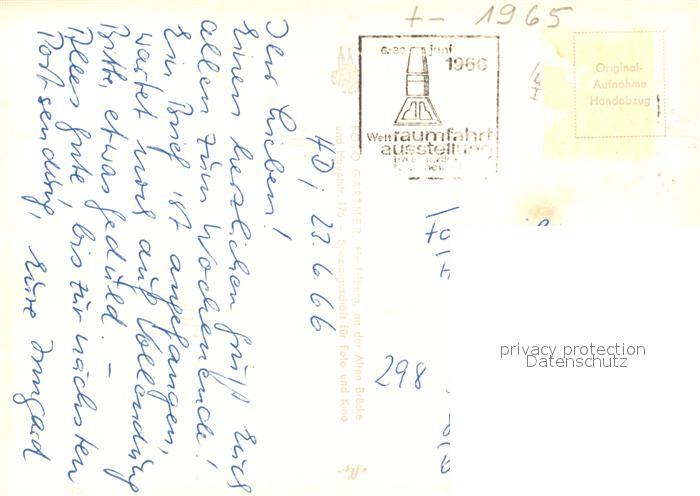 +- 1965
6-30 juni
1966
Welt raumfahrt
ausstellung
Original-
Aufnahme
Handabzug
HD, 23.6.66
Ihr Lieben!
Einen herzlichen Gruß Euch
allen zum Wochenende!
Ein Brief ist angefangen,
wartet noch auf Vollendung
Bitte, etwas geduld. –
Alles gute bis zur nächsten
Postsendung, Eure Irmgard
FOTO GÄRTNER, Heidelberg, an der Alten Brücke
und Hauptstr. 176 – Spezialgeschäft für Foto und Kino
298
privacy protection
Datenschutz